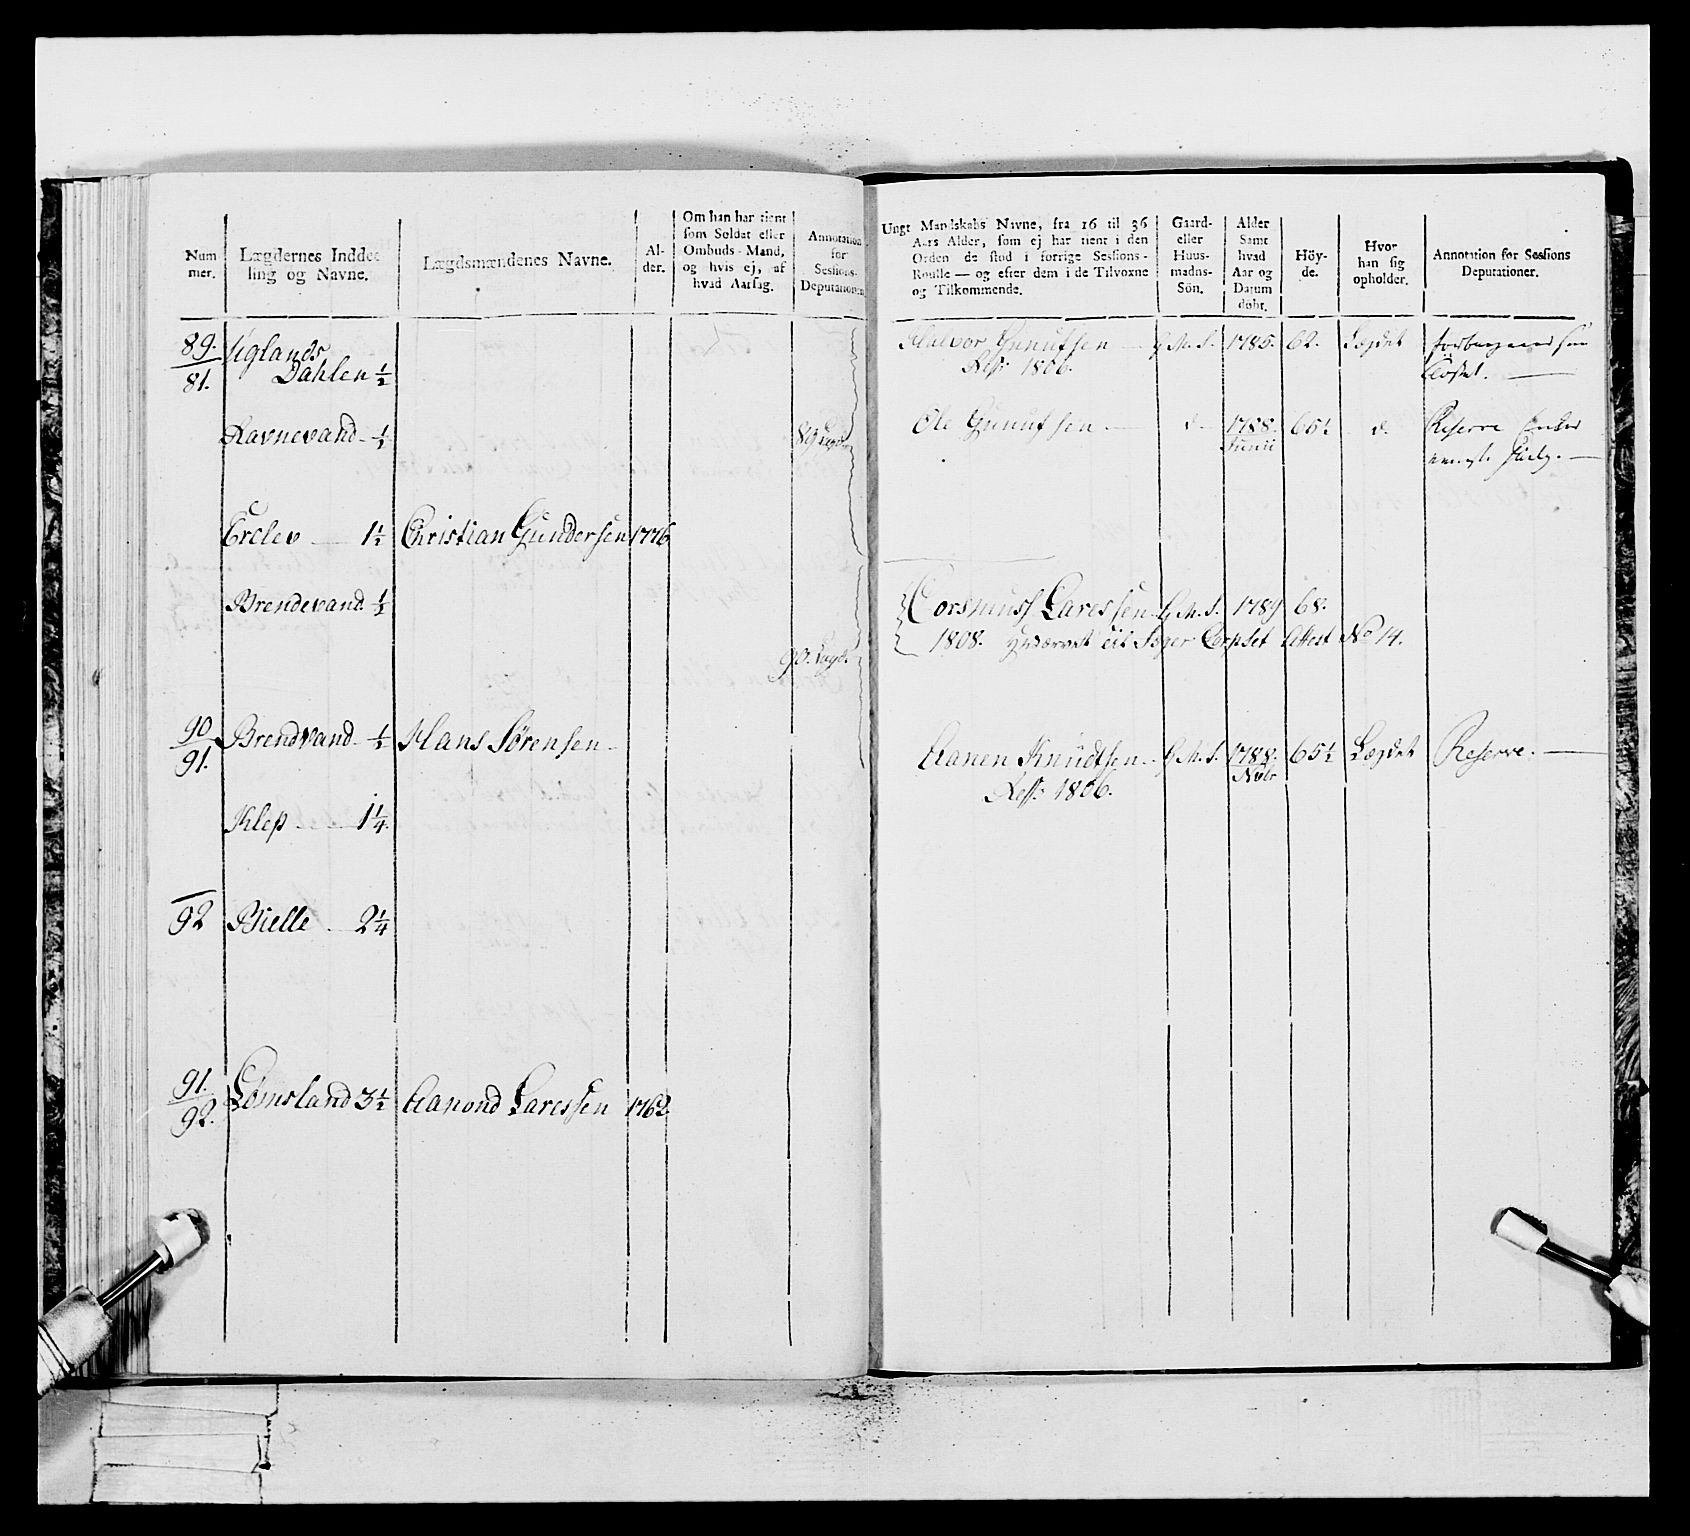 Num-
mer.
Lægdernes Inddee
ling og Navne.
Lægdsmændenes Navne.
Al-
der.
Om han har tient
som Soldat eller
Ombuds-Mand,
og hvis ej, af
hvad Aarsag.
Annotation
for
Sessions-
Deputationen
89.
81.
Uglands
Dahlen ½
Ravnevand ½
89 Lægd
Erclev 1½ Christian Gundersen 1776
Brendevand ½
90. Lægd.
90
91.
Brendvand ½ Hans Sørensen
Klep 1¼
92 Bielle 2¼
91.
92.
Lømsland 3½ Aanond Laressen 1762
Ungt Mandskabs Navne, fra 16 til 36
Aars Alder, som ej har tient i den
Orden de stod i forrige Sessions-
Roulle — og efter dem i de Tilvoxne
og Tilkommende.
Gaard-
eller
Huus-
madns-
Sön.
Alder
Samt
hvad
Aar og
Datum
döbt.
Höy-
de.
Hvor
han sig
opholder.
Annotation for Sessions
Deputationer.
Halvor Gunufsen G.M.S. 1785. 62. Lægdet
Ress. 1806.
Ole Gunufsen d 1788. 65½ d. Reserve
Junii
Corsnuss Laressen G.M.S. 1789 68.
1808. til Jæger Corpset Attest No 14.
Aanen Knudtsen G.M.S. 1788. 65½ Lægdet Reserve.
Novbr
Ress. 1806.